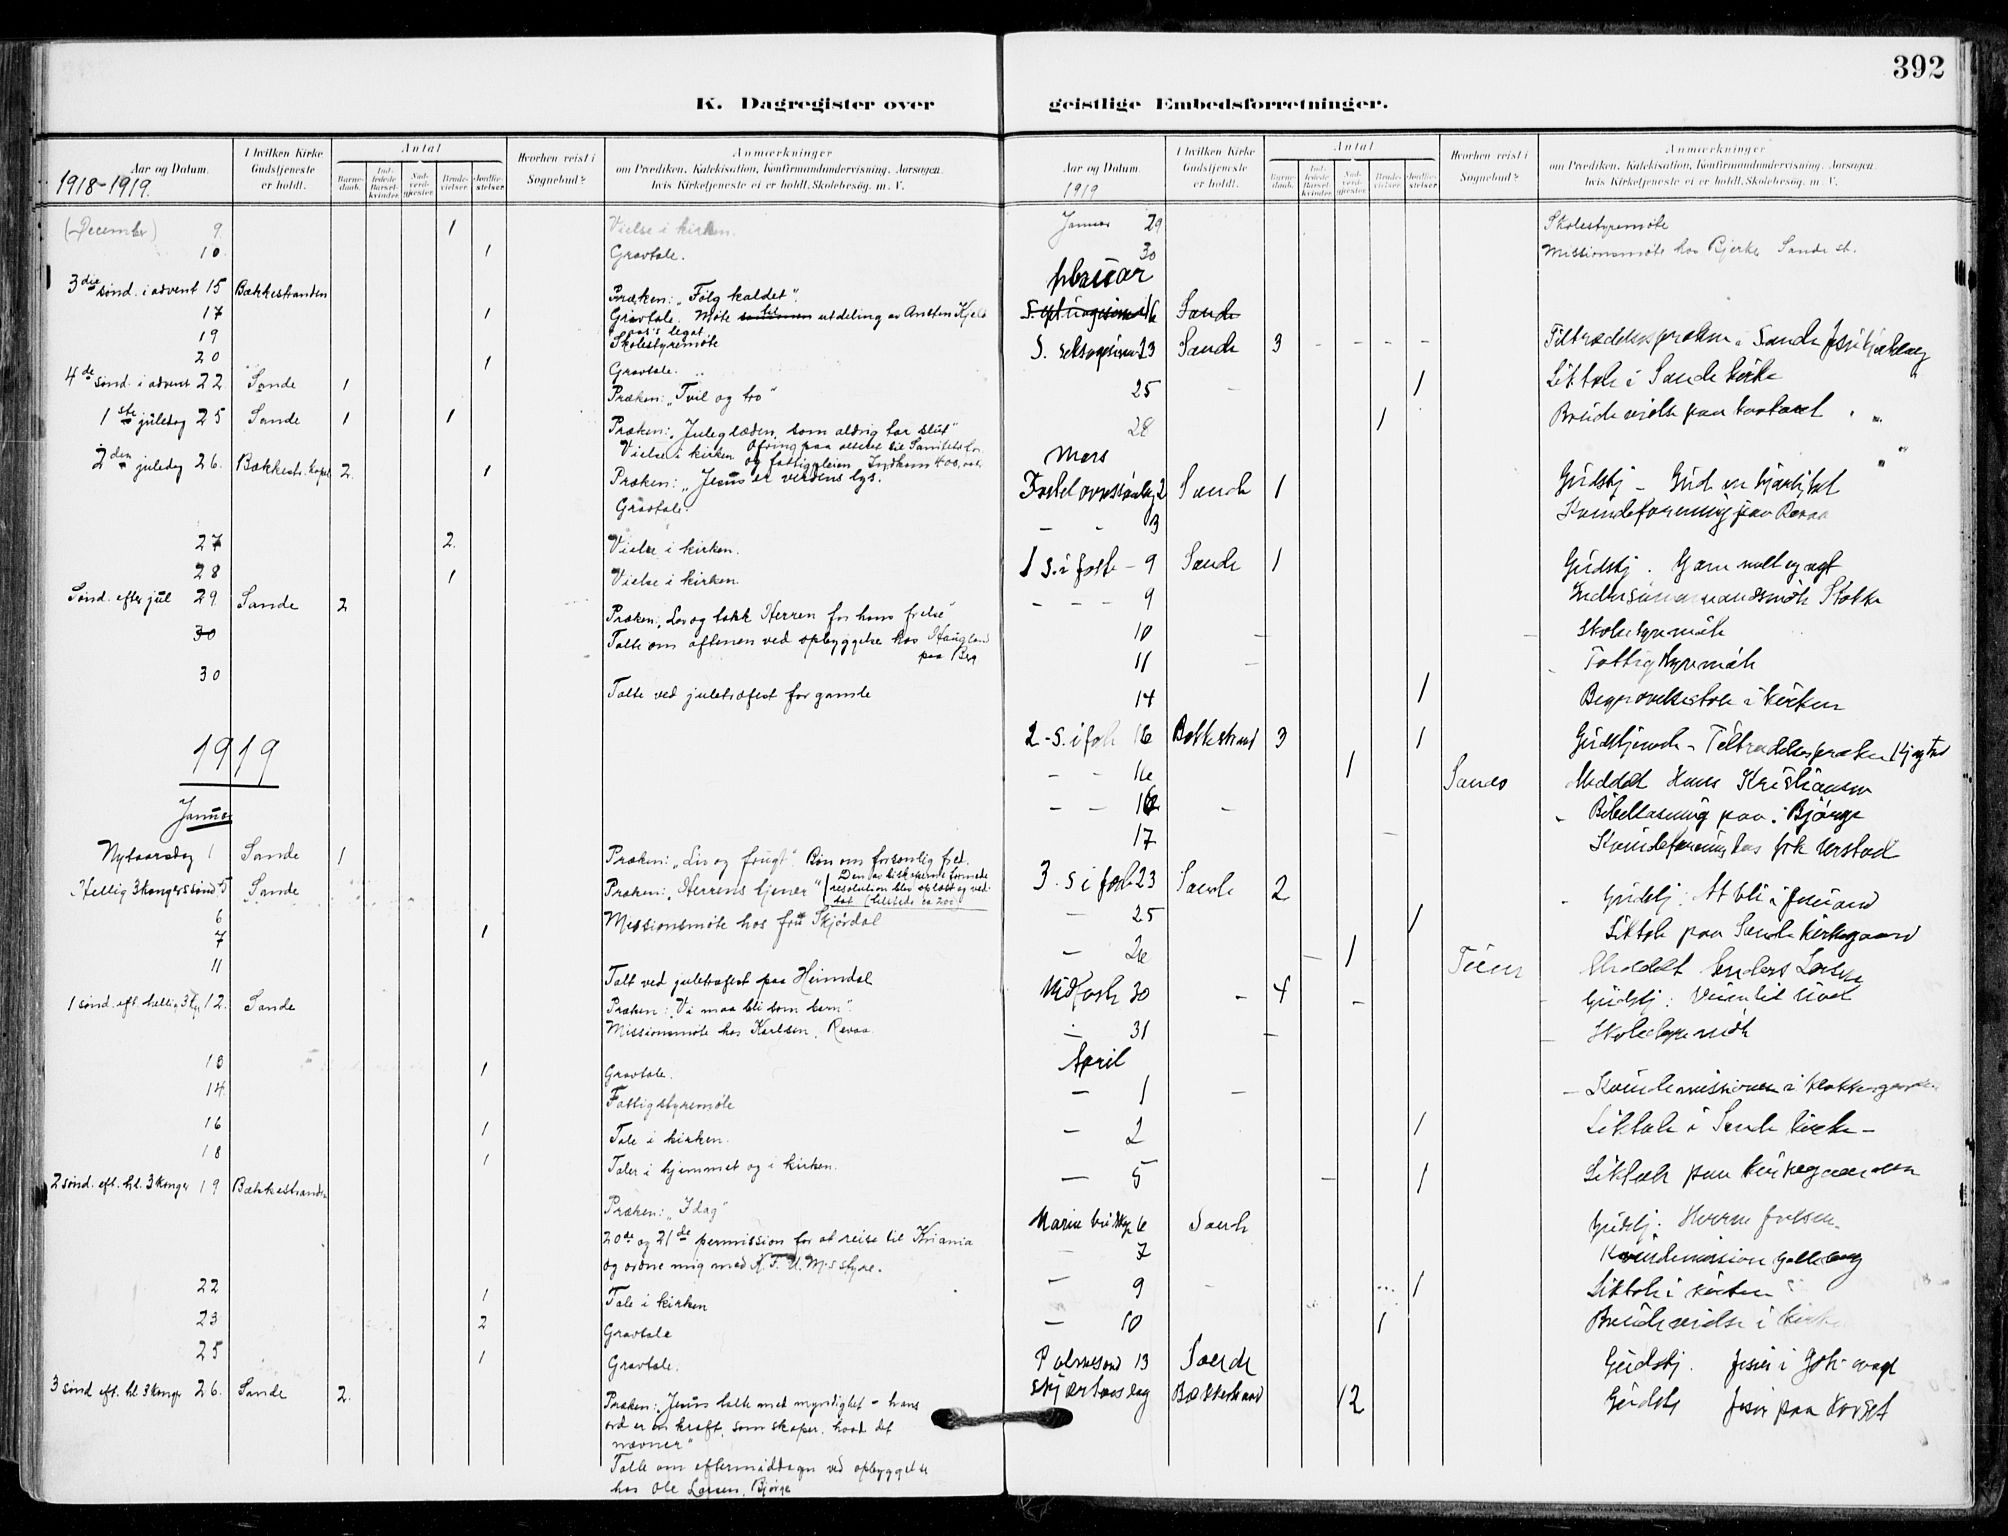 392
K. Dagregister over
Aar og Datum.
1918-1919.
I hvilken Kirke Gudstjeneste er holdt.
Antal
Barne-daab.
Ind-ledede Barsel-kvinder.
Nad-verd-gjester.
Brude-vielser.
Jordfæ-stelser.
Hvorhen reist i Sognebud?
Anmærkninger
om Prædiken, Katekisation, Konfirmandundervisning, Aarsagen
hvis Kirketjeneste ei er holdt, Skolebesøg m. V.
(December) 9. 1 Vielse i kirken.
10. 1 Gravtale.
3die sønd. i advent 15 Bækkestranden Præken: „Følg kaldet".
17 1 Gravtale. Møte til utdeling av Ansten Kjel
aas's legat.
19 Skolestyremøte
20 1 Gravtale.
4de sønd. i advent 22 Sande 1 Præken: „Tvil og tro"
1ste juledag 25 Sande 1 1 Præken: „Juleglæden, som aldrig tar slut"
Vielse i kirken Ofring paa alteret til
og fattigpleien
2den juledag 26. Bækkest. kapel 2. 1 Præken: „Jesus er verdens lys.
Gravtale.
27 2. Vielse i kirken.
28 1 Vielse i kirken.
Sønd. efter jul 29. Sande 2 Præken: „Lov og takk Herren for hans frelse"
30 Talte om aftenen ved opbyggelse hos Haugland
paa Berg
30 Talte ved juletræfest for gamle
1919
Januar
Nytaarsdag 1 Sande 1 Præken: „Liv og frugt". Bøn om forsonlig fred.
Hellig 3 kongers sønd. 5 Sande Præken: „Herrens tjener" (Den av biskoperne formede
resolution blev oplæst og ved-
tat (tilstede ca 200)
6 Missionsmøte hos fru Skjørdal
7 1
11 Talt ved juletræfest paa Heimdal
1 sønd. eft. hellig 3 kg 12. Sande Præken: „Vi maa bli som barn".
Missionsmøte hos Karlsen, Revaa.
13 1 Gravtale.
14. Fattigstyremøte
16 1 Tale i kirken.
18 1 Taler i hjemmet og i kirken.
2 sønd. eft. hl. 3 konger 19 Bækkestranden Præken: „Idag"
20de og 21de permission for at reise til Kriania
og ordne mig med K.F.U.M.s styre.
22 1 Tale i kirken
23 2 Gravtale
25 1 Gravtale.
3 sønd eft. hl 3 konger 26. Sande 2. Præken: „Jesus talte med myndighet - hans
ord er en kraft, som skaper, hvad det
nævner"
Talte om eftermiddagen ved opbyggelse
hos Ole Larsen, Bjørge
geistlige Embedsforretninger.
Aar og Datum
1919
I hvilken Kirke Gudstjeneste er holdt.
Antal
Barne-daab.
Ind-ledede Barsel-kvinder.
Nad-verd-gjester.
Brude-vielser.
Jordfæ-stelser.
Hvorhen reist i Sognebud?
Anmærkninger
om Prædiken, Katekisation, Konfirmandundervisning, Aarsagen
hvis Kirketjeneste ei er holdt, Skolebesøg m. V.
Januar 29 Skolestyremøte
30 Missionsmøte hos Bjerke Sande st.
februar
S. septuagesima 16 Sande
S. seksagesima 23 Sande 3 - - - - Tiltrædelsespræken i Sande
25 - 1 Liktale i Sande kirke
28 1 Brudevielse paa kontoret
Mars
Fastelavnssøndag 2 Sande 1 Gudstj - Gud er kjærlighet
- - 3 Kvindeforening paa Revaa
1 S. i faste - 9 Sande 1 Gudstj.
- - - 9
10 - - Skolestyremøte
11 - - Fattigstyremøte
14 1 Begravelsestale i kirken
2 - S. i faste 16 Bekkestrand 3 1 Gudstjeneste - Tiltrædelsespræken
- - 16 1 Sande Meddelt Hans Kristiansen
- - 16 - - Bibellæsning paa Bjørge
17 - Kvindeforening hos
3. S i faste 23 Sande 2 - Gudstj: At bli i Jesu ord
- 25 1 Liktale paa Sande kirkegaard
- 26 - 1 Meddelt Anders Larsen
Midfaste 30 - 4 - Gudstj:
- 31 - - Skolestyremøte
April
- 1 - - Kvindemissionen i
- 2 1 Liktale i Sande kirke -
- 5 - 1 Liktale paa kirkegaarden
Maria budskap 6 Sande Gudstj. Herren frelser.
- 7 Kvindemission Galleberg
- 9 - 1 Liktale i kirken
- 10 1 Brudevielse i kirken
Palmesønd 13 Sande Gudstj.
Skjærtorsdag Bækkestrand 12 Gudstj Jesus paa korset